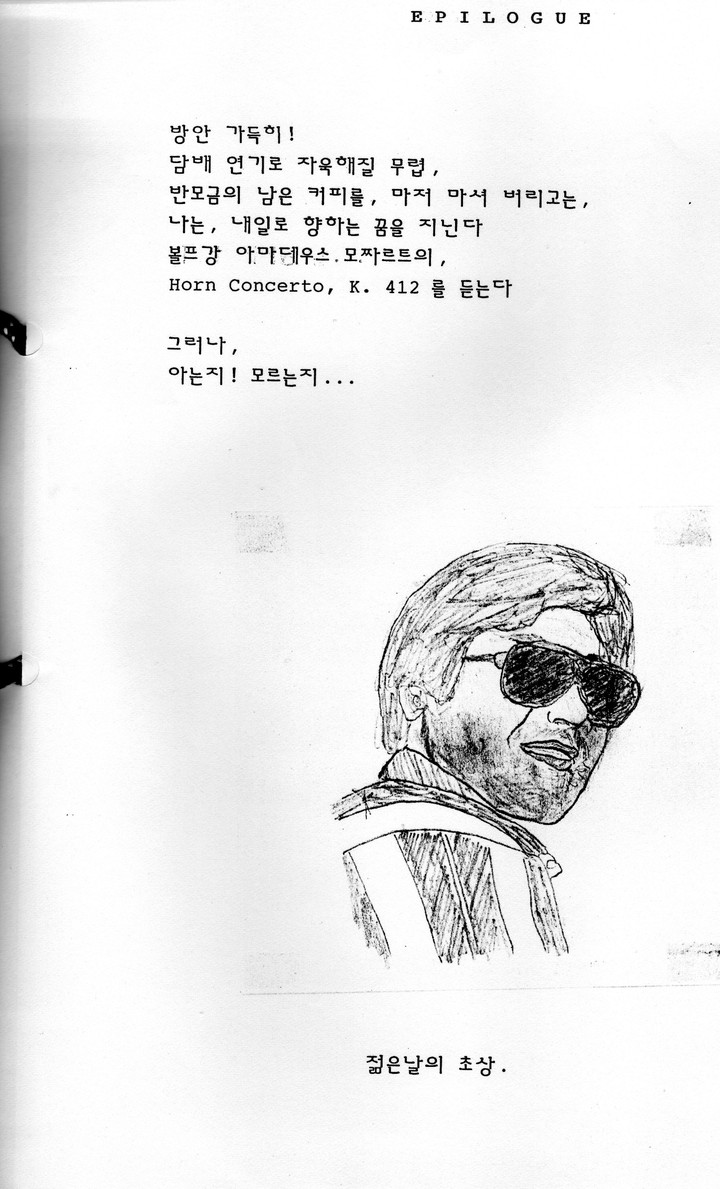 E P I L O G U E
방안 가득히!
담배 연기로 자욱해질 무렵,
반모금의 남은 커피를, 마저 마셔 버리고는,
나는, 내일로 향하는 꿈을 지닌다
볼프강 아마데우스.모짜르트의,
Horn Concerto, K. 412 를 듣는다
그러나,
아는지! 모르는지...
젊은날의 초상.